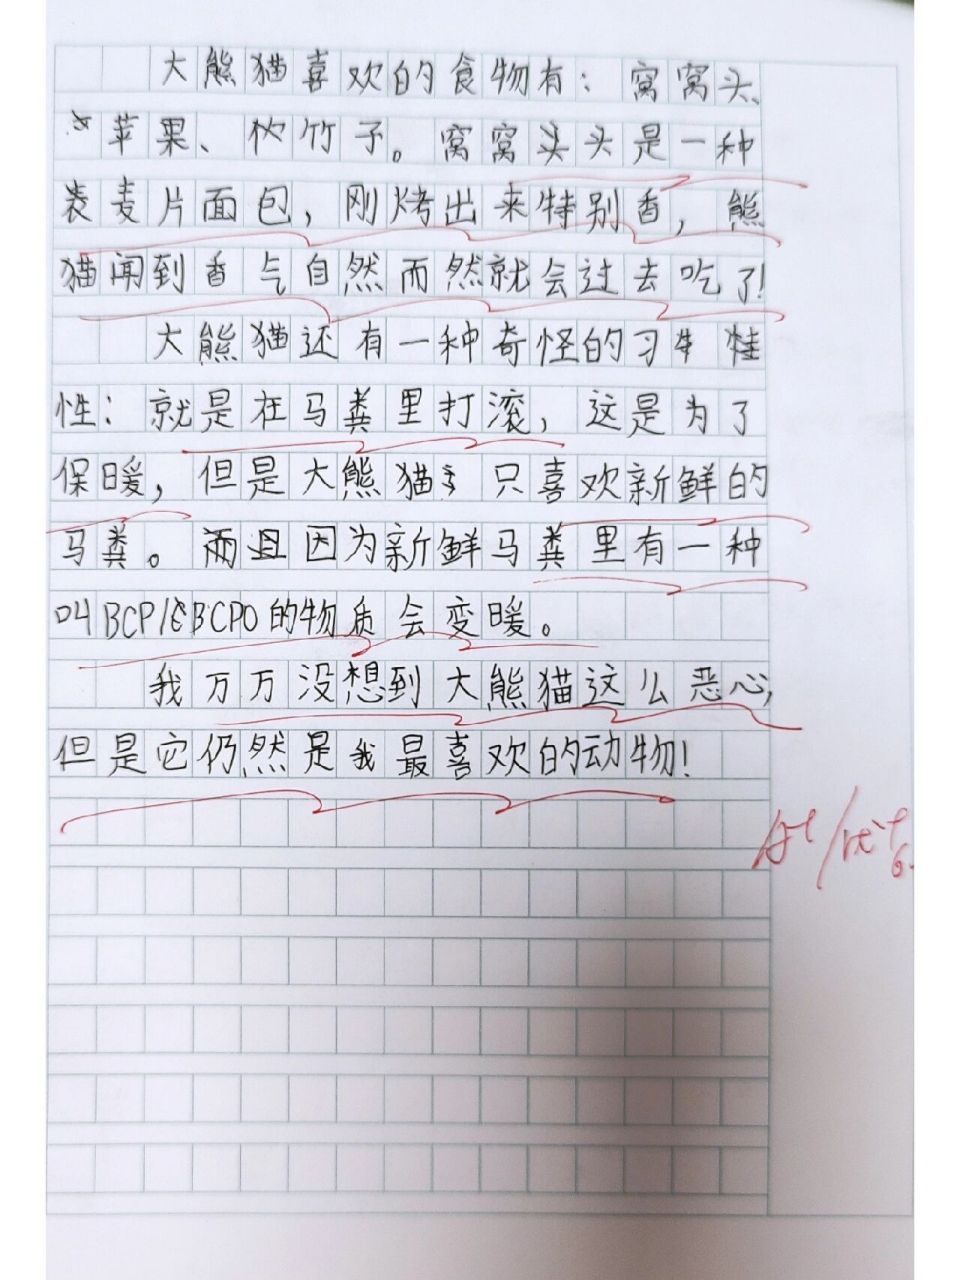 大熊猫喜欢的食物有：窝窝头、
苹果、竹子。窝窝头头是一种
麦片面包，刚烤出来特别香，熊
猫闻到香气自然而然就会过去吃了！
大熊猫还有一种奇怪的习
性：就是在马粪里打滚，这是为了
保暖，但是大熊猫只喜欢新鲜的
马粪。而且因为新鲜马粪里有一种
叫BCP/BCPO的物质会变暖。
我万万没想到大熊猫这么恶心，
但是它仍然是我最喜欢的动物！